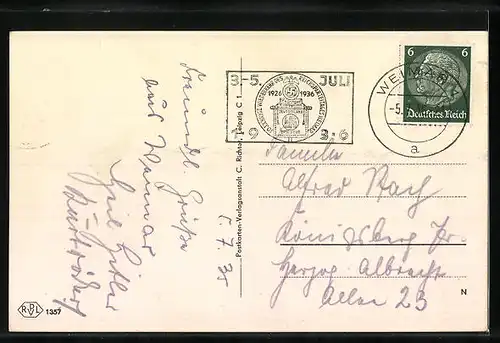 Freundl. Grüße
aus Weimar
Heil Hitler
5.7.35
Postkarten-Verlagsanstalt C. Richter, Leipzig C 1
RPVL 1357
3-5. JULI
1926 1936
19 36
WEIMAR
-5.
a
6 6
Deutsches Reich
Familie
Alfred
Königsberg Pr.
Herzog Albrecht
Allee 23
N